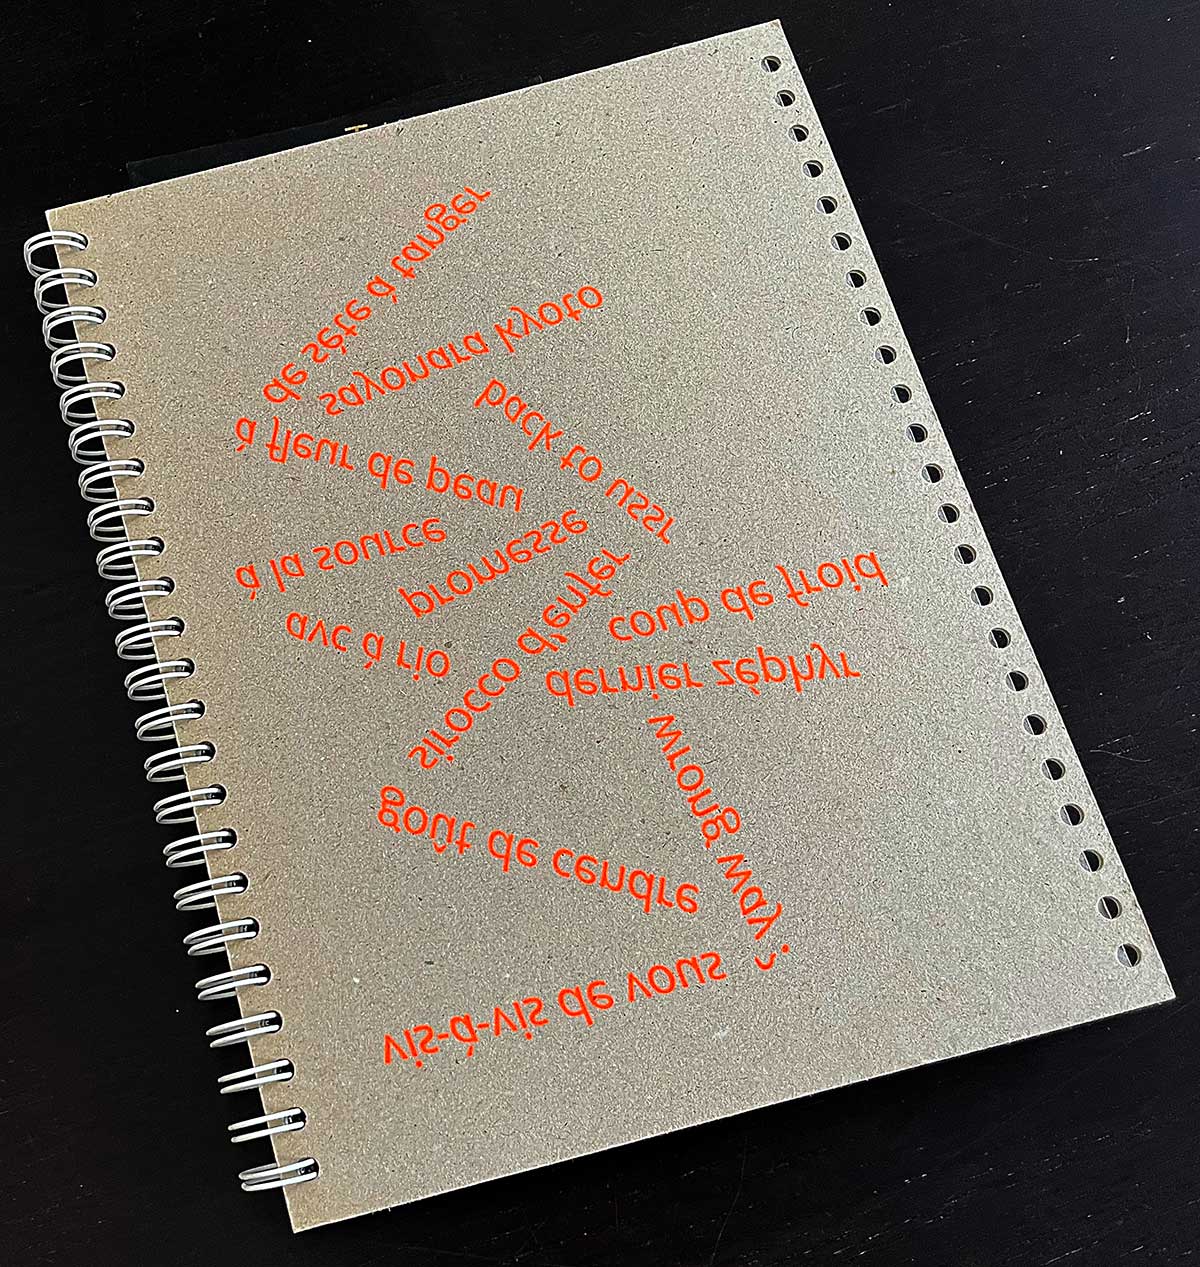 de sète à tanger
sayonara kyoto
back to ussr
à fleur de peau
à la source
promesse
sirocco d'enfer
coup de froid
avc à rio
dernier zéphyr
wrong way ?
goût de cendre
vis-à-vis de vous